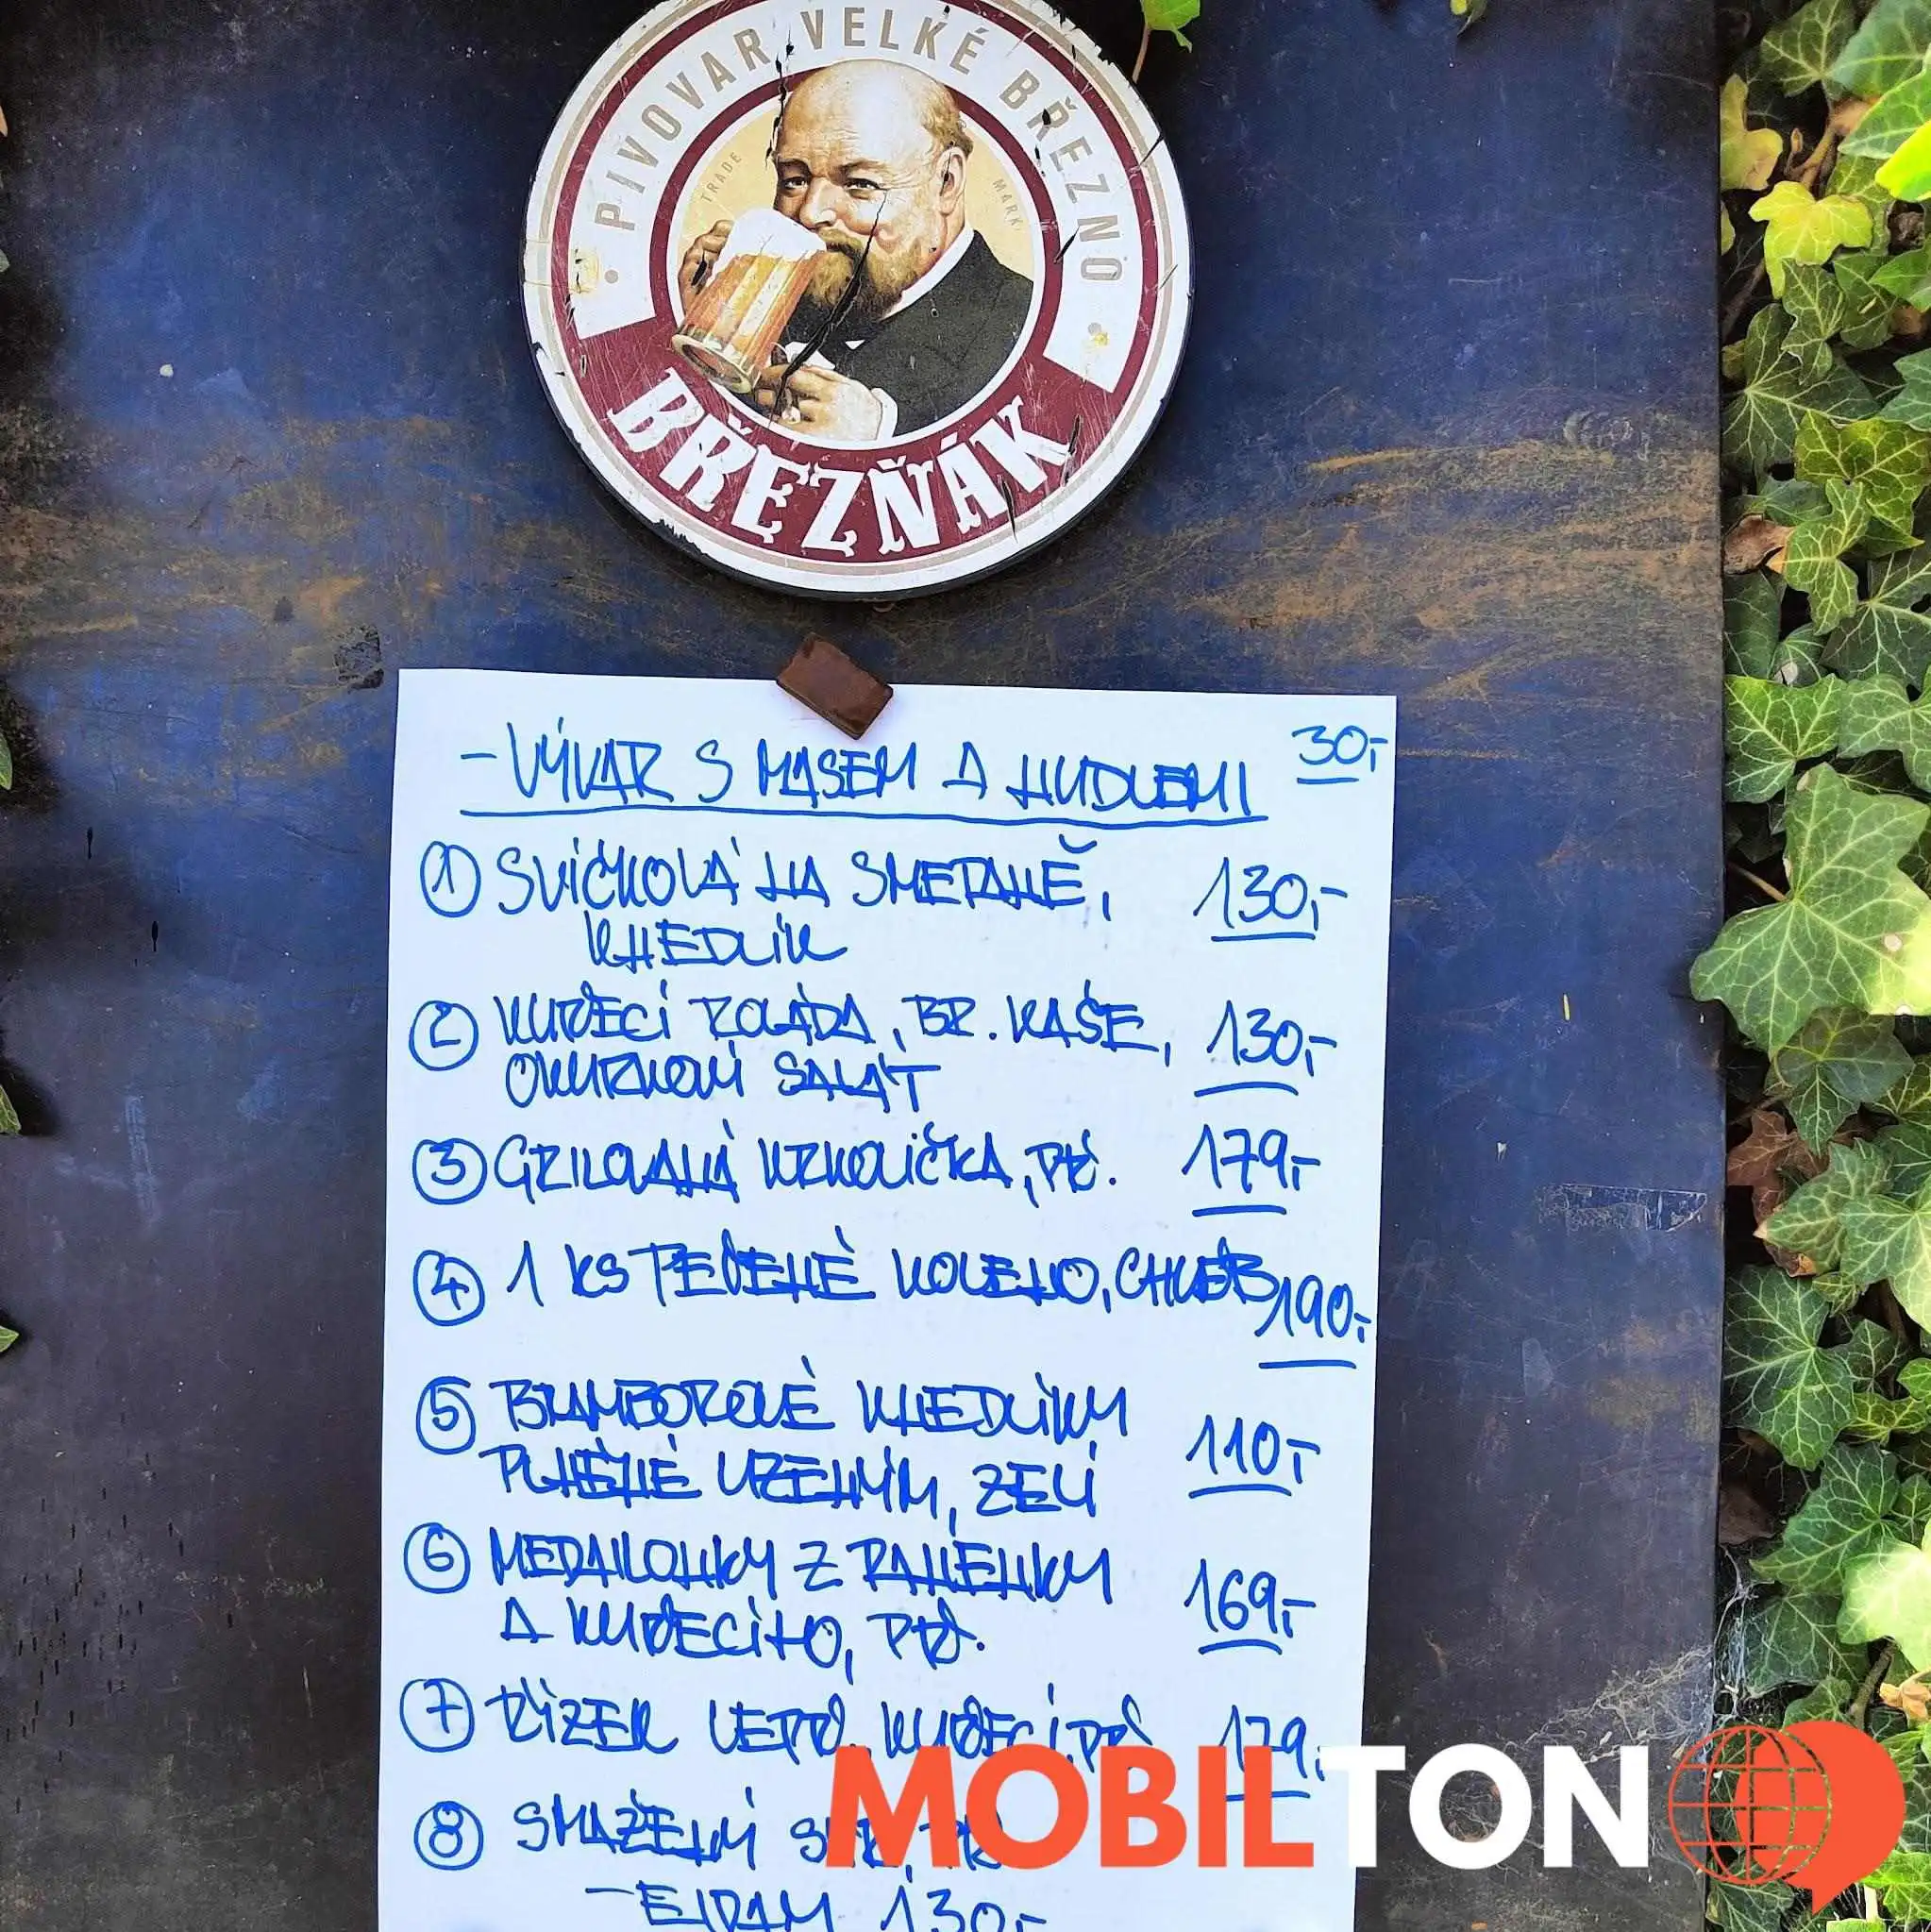 PIVOVAR VELKÉ BŘEZNO
TRADE MARK
BŘEZŇÁK
- VÝVAR S MASEM A NUDLEMI 30,-
1 SVÍČKOVÁ NA SMETANĚ, 130,-
KNEDLÍK
2 KUŘECÍ ROLÁDA, BR. KAŠE, 130,-
OKURKOVÝ SALÁT
3 GRILOVANÁ KRKOVIČKA, PŘ. 179,-
4 1 KS PEČENÉ KOLENO, CHLÉB 190,-
5 BRAMBOROVÉ KNEDLÍKY
PLNĚNÉ UZENÝM, ZELÍ 110,-
6 MEDAILONKY Z PANENKY
A KUŘECÍHO, PŘ. 169,-
7 ŘÍZEK VEPŘ., KUŘECÍ, PŘ 179,-
8 SMAŽENÝ SÝR, PŘ
- EIDAM 130,-
MOBILTON